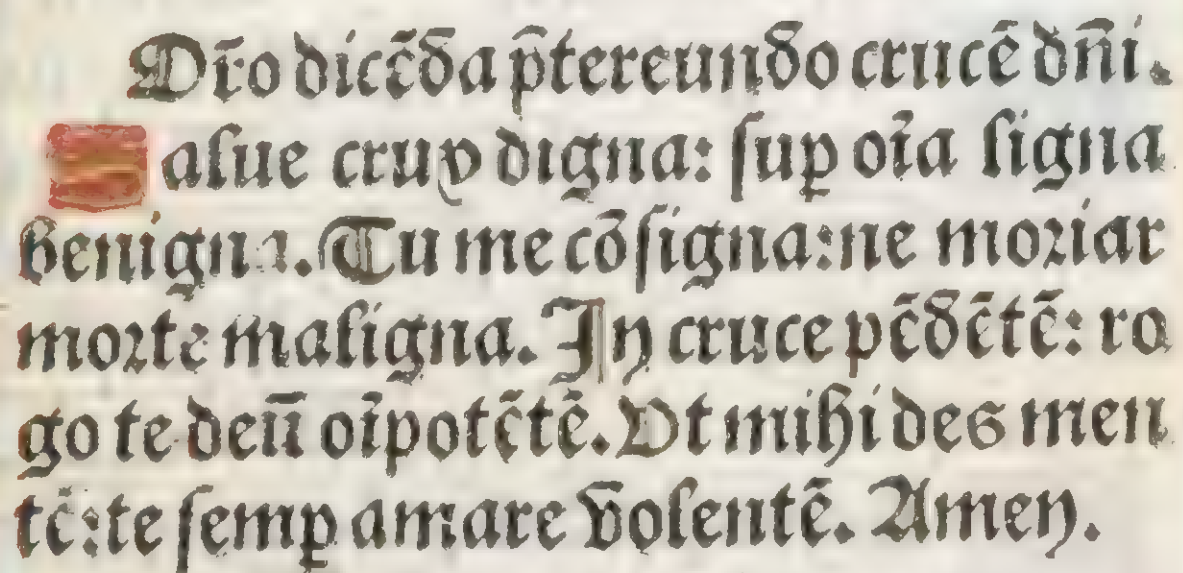 Or̄o dicēda p̄tereundo crucē dn̄i.
Salue crux digna: ſuꝑ oīa ſigna
benigna. Tu me cōſigna: ne moriar
morte maligna. In cruce pēdētē: ro
go te deū oīpotētē. Ut mihi des men
tē: te ſemꝑ amare volentē. Amen.